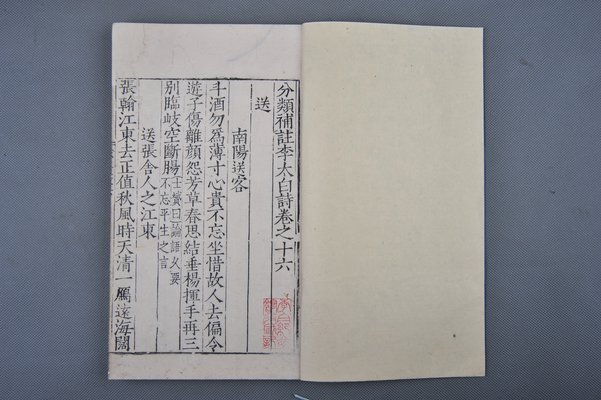 分類補註李太白詩卷之十六
送
南陽送客
斗酒勿爲薄寸心貴不忘坐惜故人去偏令
遊子傷離顏怨芳草春思結垂楊揮手再三
別臨岐空斷腸士贇曰論語久要
不忘平生之言
送張舍人之江東
張翰江東去正值秋風時天清一鴈遠海闊